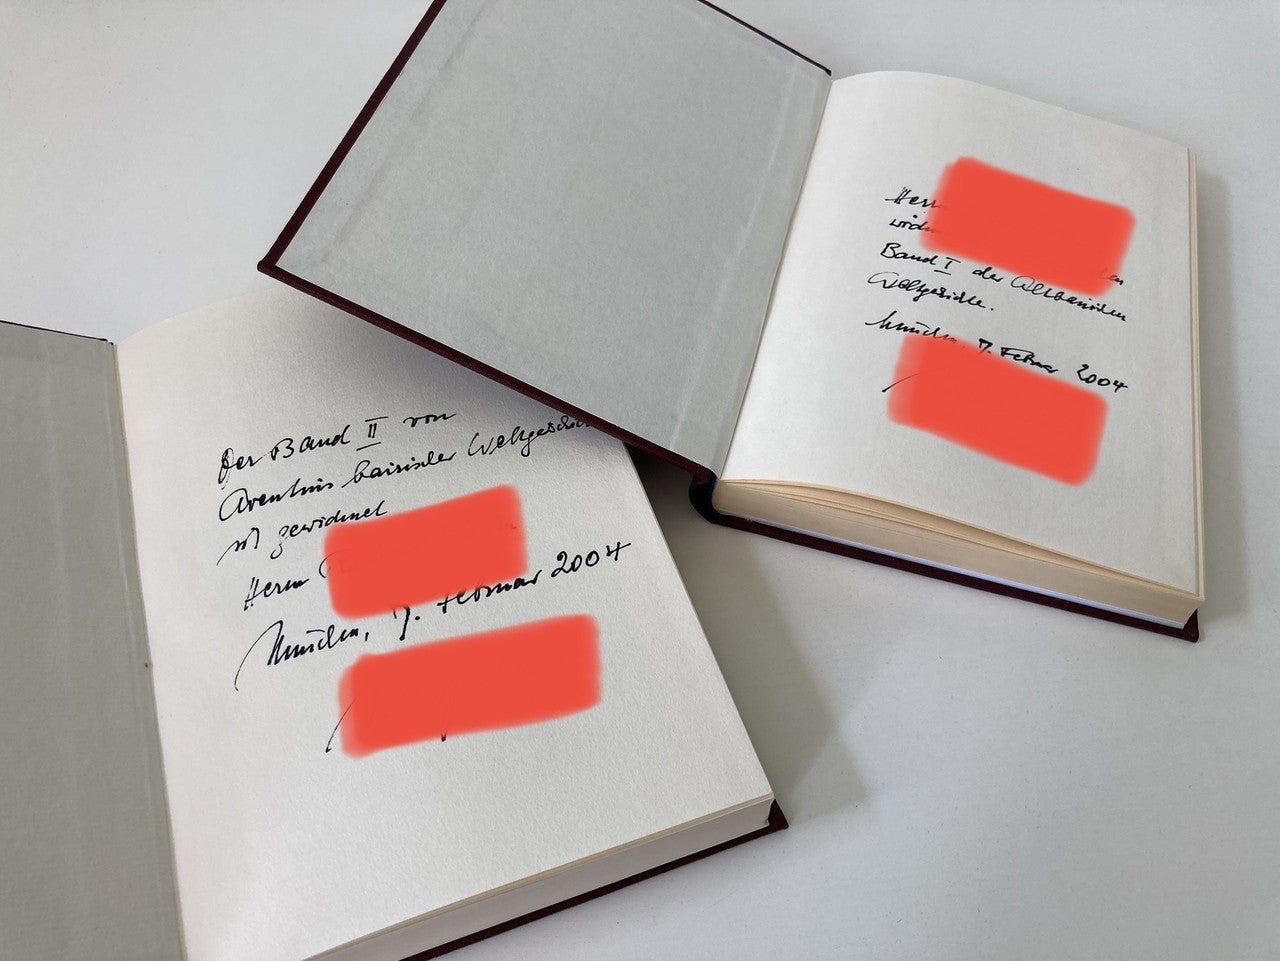 Der Band II von
Aventins bairischer Weltgeschichte
ist gewidmet
Herrn
München, 7. Februar 2004
Herrn
Band I der Altbairischen
Weltgeschichte.
München, 7. Februar 2004